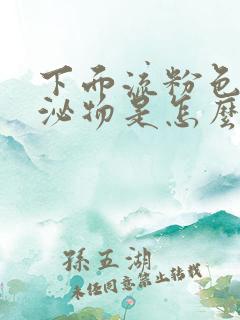 下而流粉色
泌物是怎麼
孫五湖
未經同意禁止轉載